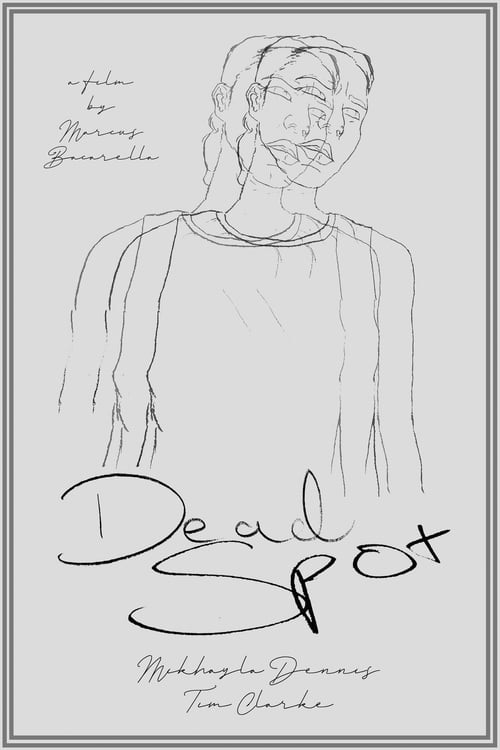 a film
by
Marcus
Bacarella
Dead
Spot
Mikhayla Dennis
Tim Clarke